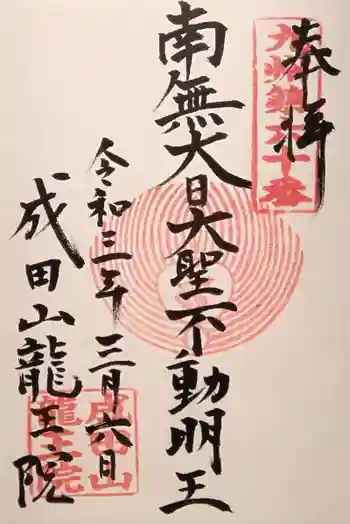 奉拝
南無大日大聖不動明王
令和三年 三月六日
成田山龍王院
成田山
龍王院